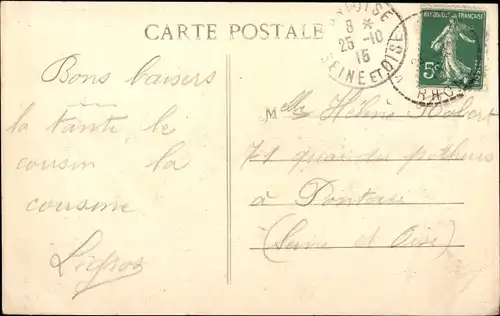 CARTE POSTALE
PONTOISE
8 *
25 -10
16
SEINE ET OISE
REPUBLIQUE FRANÇAISE
5c
RHÔ
Bons baisers
la tante, le
cousin la
cousine
Melle Hélène Robert
71 quai du pothuis
à Pontoise
(Seine et Oise)